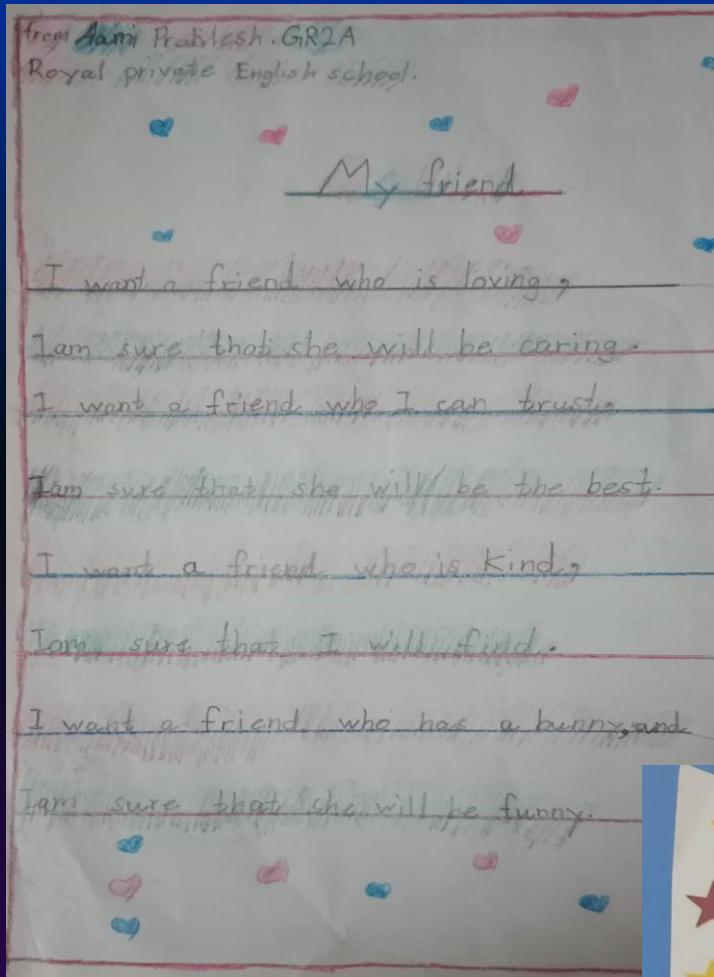 from Aami Prablesh. GR2A
Royal private English school.
My friend
I want a friend who is loving,
I am sure that she will be caring.
I want a friend who I can trust,
I am sure that she will be the best.
I want a friend who is kind,
I am sure that I will find.
I want a friend who has a bunny, and
I am sure that she will be funny.